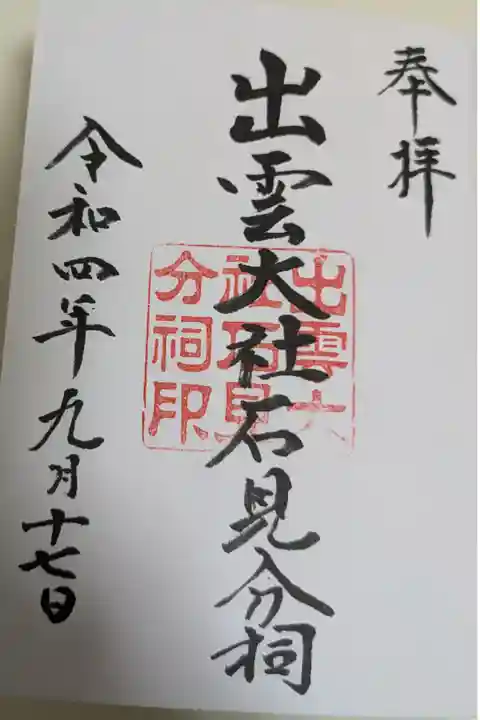 奉拝
出雲大社石見分祠
出雲大
社石見
分祠印
令和四年九月十七日